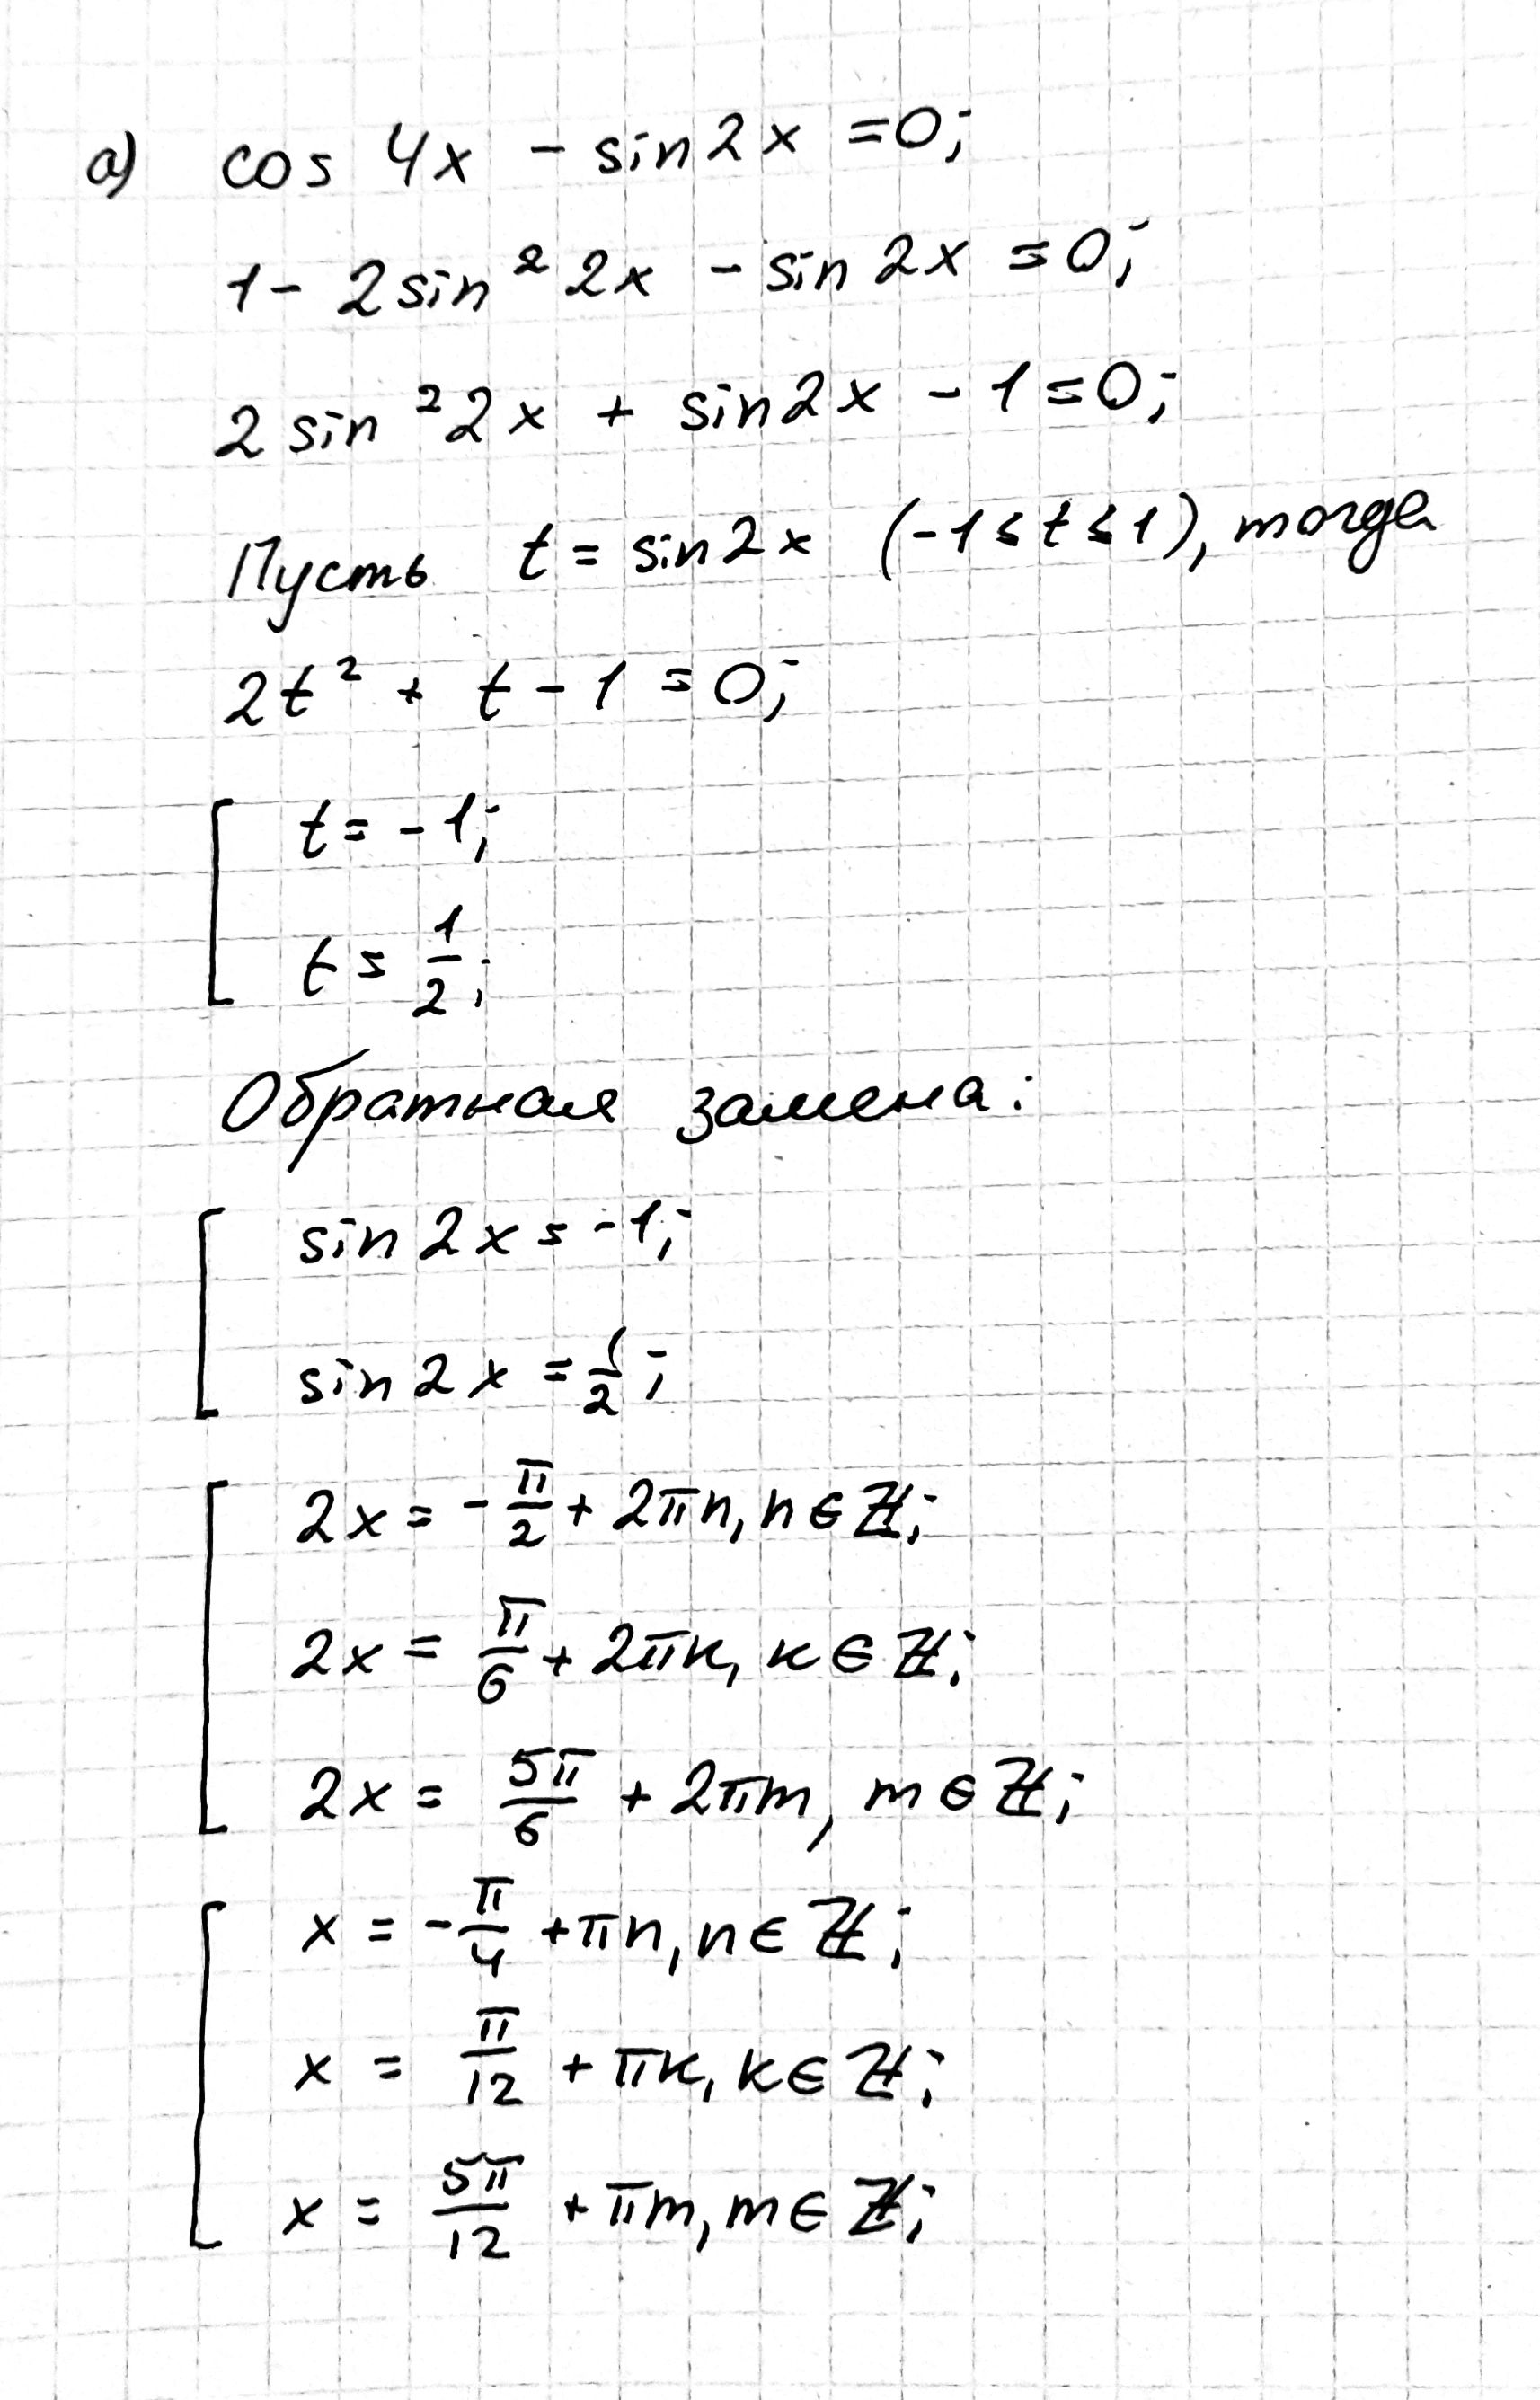 а) cos 4x - sin 2x = 0;
1 - 2 sin² 2x - sin 2x = 0;
2 sin² 2x + sin 2x - 1 = 0;
Пусть t = sin 2x (-1 ≤ t ≤ 1), тогда
2t² + t - 1 = 0;
t = -1;
t = 1/2;
Обратная замена:
sin 2x = -1;
sin 2x = 1/2;
2x = -π/2 + 2πn, n ∈ ℤ;
2x = π/6 + 2πк, к ∈ ℤ;
2x = 5π/6 + 2πm, m ∈ ℤ;
x = -π/4 + πn, n ∈ ℤ;
x = π/12 + πк, к ∈ ℤ;
x = 5π/12 + πm, m ∈ ℤ;